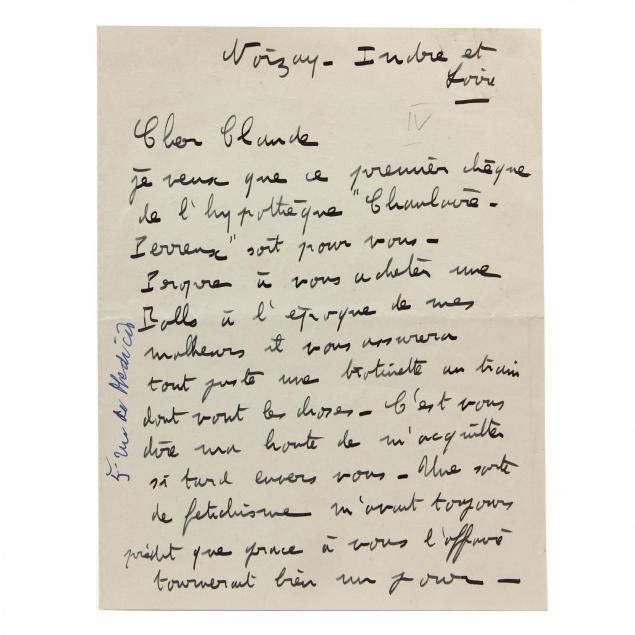 Noizay - Indre et
Loire
IV
Cher Claude
je veux que ce premier chèque
de l'hypothèque "Chanlaire-
Perreux" soit pour vous -
Propre à vous acheter une
Rolls à l'époque de mes
malheurs il vous assurera
tout juste une trotinette au train
dont vont les choses - C'est vous
dire ma honte de m'acquitter
si tard envers vous - Une sorte
de fetichisme m'avait toujours
prédit que grace à vous l'affaire
tournerait bien un jour -
5 rue de Médicis